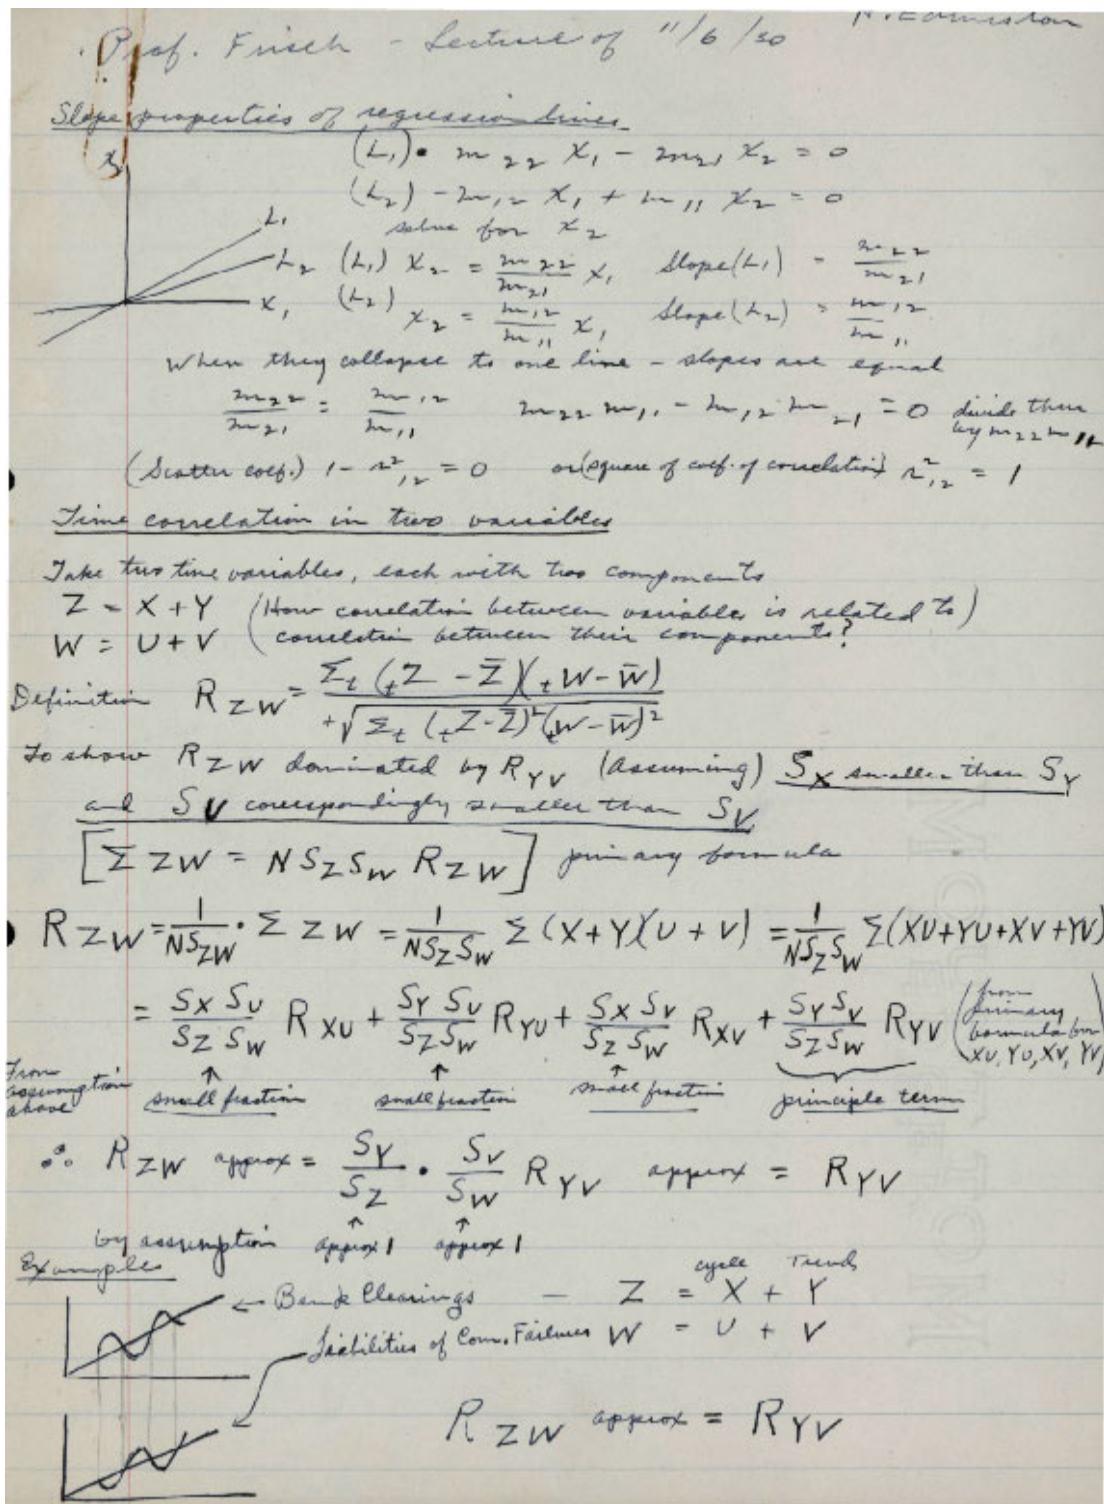 N. Edmiston
Prof. Frisch - Lecture of 11/6/30
Slope properties of regression lines
x₂
(L₁) • m₂₂ x₁ - m₂₁ x₂ = 0
(L₂) - m₁₂ x₁ + m₁₁ x₂ = 0
solve for x₂
L₁
L₂ (L₁) x₂ = m₂₂/m₂₁ x₁ Slope(L₁) = m₂₂/m₂₁
x₁ (L₂) x₂ = m₁₂/m₁₁ x₁ Slope(L₂) = m₁₂/m₁₁
When they collapse to one line - slopes are equal
m₂₂/m₂₁ = m₁₂/m₁₁ m₂₂ m₁₁ - m₁₂ m₂₁ = 0 divide thru
by m₂₂ m₁₁
(Scatter coef.) 1 - r²₁₂ = 0 or (square of coef. of correlation) r²₁₂ = 1
Time correlation in two variables
Take two time variables, each with two components
Z = X + Y (How correlation between variables is related to)
W = U + V (correlation between their components?
Definition R_ZW = Σₜ (ₜZ - Z̄)(ₜW - W̄) / +√Σₜ (ₜZ - Z̄)²(ₜW - W̄)²
To show R_ZW dominated by R_YV (Assuming) S_X smaller than S_Y
and S_U correspondingly smaller than S_V
[Σ ZW = N S_Z S_W R_ZW] primary formula
R_ZW = 1/NS_ZW • Σ ZW = 1/NS_Z S_W Σ (X+Y)(U+V) = 1/NS_Z S_W Σ(XU+YU+XV+YV)
= S_X S_U/S_Z S_W R_XU + S_Y S_U/S_Z S_W R_YU + S_X S_V/S_Z S_W R_XV + S_Y S_V/S_Z S_W R_YV (from primary formula for XU, YU, XV, YV)
From assumption above ↑ small fraction ↑ small fraction ↑ small fraction principle term
∴ R_ZW approx = S_Y/S_Z • S_V/S_W R_YV approx = R_YV
by assumption ↑ approx 1 ↑ approx 1
Examples
cycle Trends
← Bank Clearings — Z = X + Y
Liabilities of Com. Failures W = U + V
R_ZW approx = R_YV